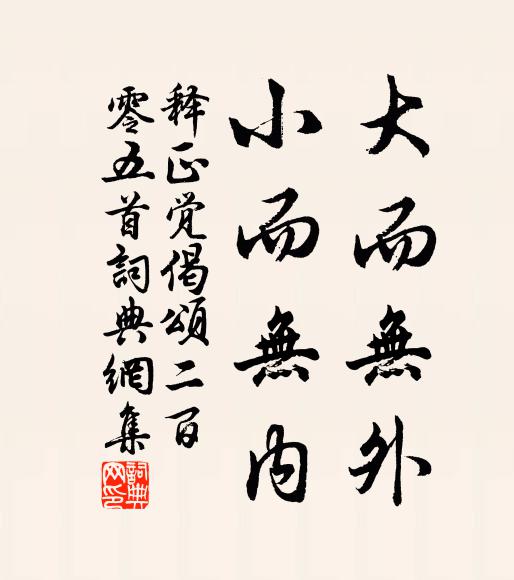 大而無外
小而無内
释正觉偈頌二百
零五首詞典網集
詞典网印